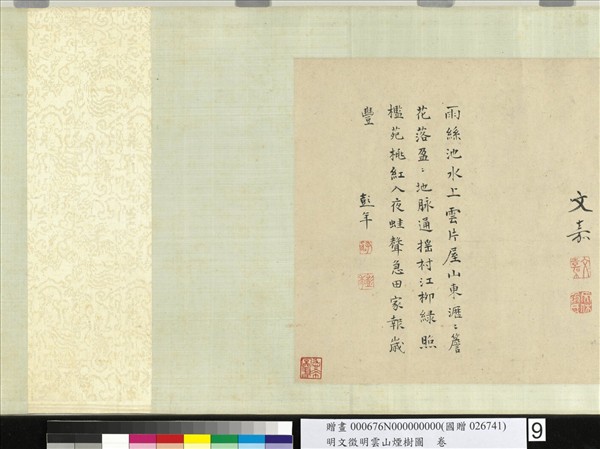 文嘉
雨絲池水上雲片屋山東滙〻簷
花落盈〻地脉通搖村江柳綠照
檻苑桃紅入夜蛙聲急田家報歲
豐
彭年
贈畫 000676N000000000(國贈 026741)
明文徵明雲山煙樹圖 卷
9